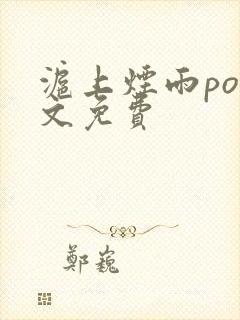 滬上煙雨po
文免費
鄭巍